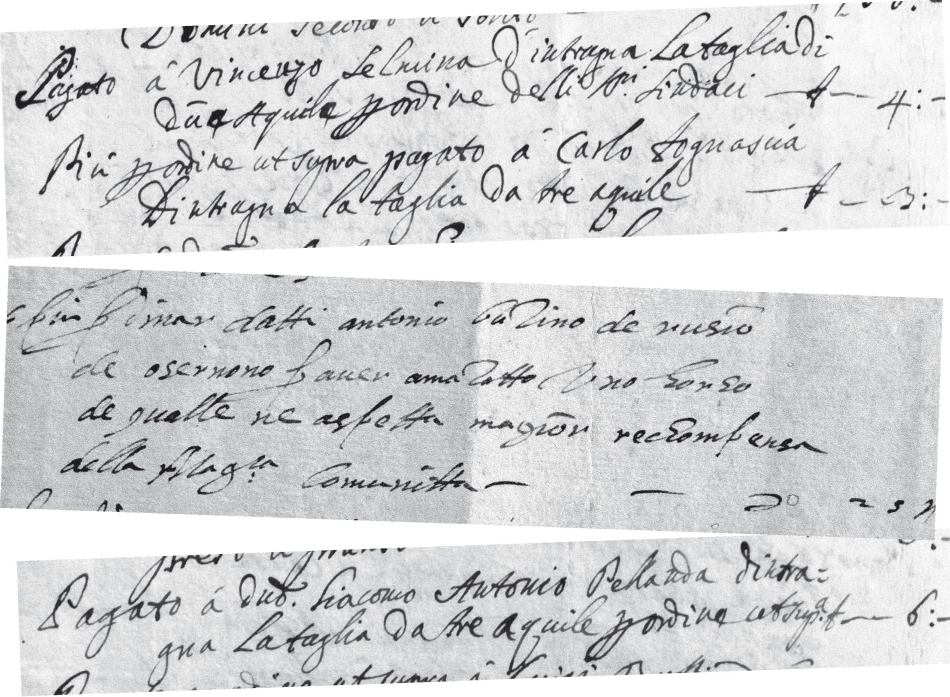 Pagato á Vincenzo Selmina d'intragna La taglia di
due Aquile p ordine delli Sri. Sindaci — £ — 4:-
Più p ordine ut supra pagato á Carlo Fognasúa
Dintragna la taglia da tre aquile — £ — 3:-
datti antonio de rusio
de osernono haver amazatto Vno Horso
de qualle ne aspetta magior reccompensa
della Magca. Comunitta — —
Pagato á Dno. Giacomo Antonio Pellanda dintra=
gna La taglia da tre aquile p ordine ut supa. £ — 6:-